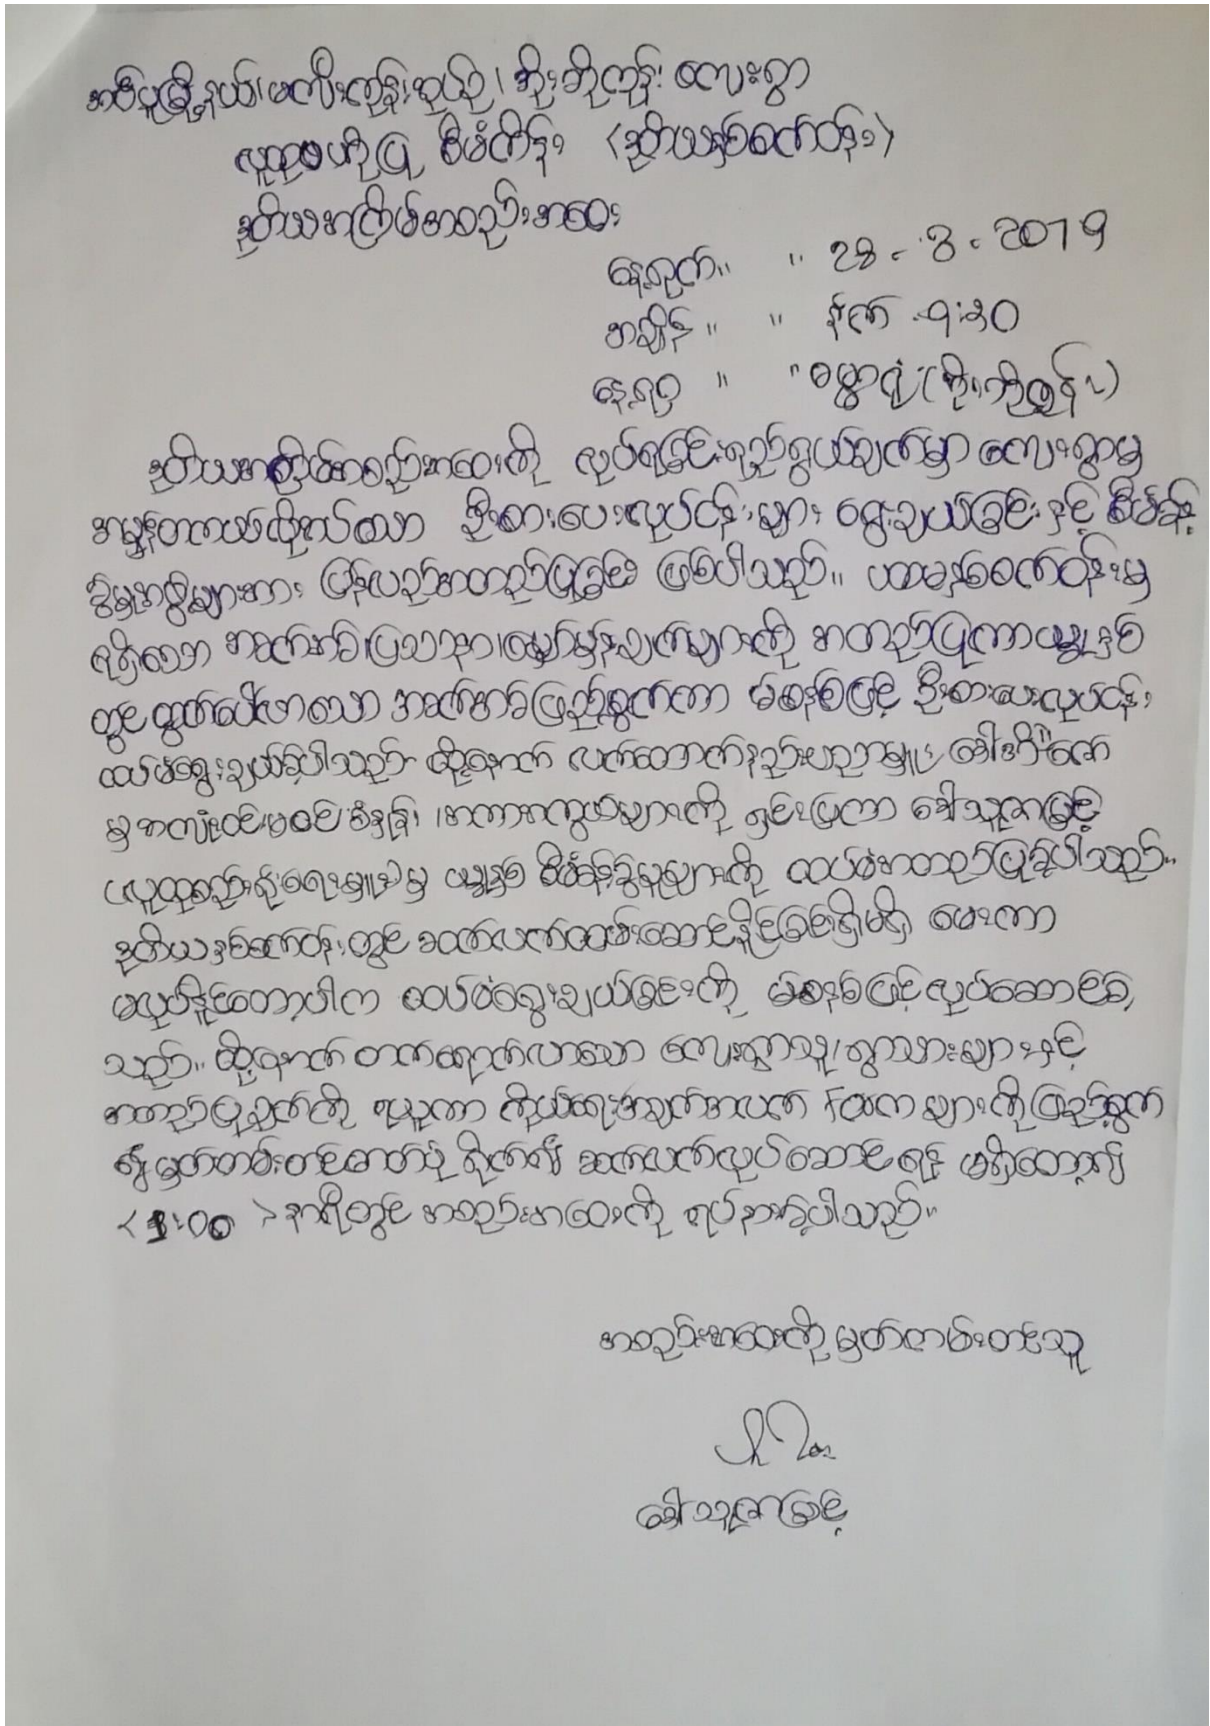 အုပ်စု၊ အိုးဘိုကုန်း ကျေးရွာ
လူထုဗဟိုပြု စီမံကိန်း (ဒုတိယနှစ်စက်ဝန်း)
ဒုတိယအကြိမ်အစည်းအဝေး
နေ့ရက်။ ။ 28. 3. 2019
အချိန် ။ ။ နံနက် ၊ ၅:၃၀
နေ့ရာ ။ ။ ဓမ္မာရုံ (အိုးဘိုကုန်း)
ဒုတိယအကြိမ်အစည်းအဝေးကို လုပ်ရခြင်းရည်ရွယ်ချက်မှာ ကျေးရွာမှ
အမှန်တကယ်လိုလပ်သော ဦးစားပေးလုပ်ငန်းများ ရွေးချယ်ခြင်းနှင့် စီမံခန့်
ခွဲမှုအဖွဲ့များအား ပြန်လည်အတည်ပြုခြင်း ဖြစ်ပါသည်။ ပထမနှစ်စက်ဝန်းမှ
ရရှိသော အခက်အခဲ၊ ပြဿနာ၊ မျှော်မှန်းချက်များကို အတည်ပြုကာယခုနှစ်
တွင် ထွက်ပေါ်လာသော အခက်အခဲဖြည့်စွက်ကာ မဲစနစ်ဖြင့် ဦးစားပေးလုပ်ငန်း
ထပ်မံရွေးချယ်ခဲ့ပါသည်။ ထို့နောက် လက်ထောက်နည်းပညာမှူး ဒေါ်
မှ အလုံးဝင်မဝင် စံနှုန်း၊ အကာအကွယ်များကို ရှင်းပြကာ ဒေါ်သူဇာမြင့်
(လူထုစည်းရုံးရေးမှူး)မှ ယခုနှစ် စီမံခန့်ခွဲမှုများကို ထပ်မံအတည်ပြုခဲ့ပါသည်။
ဒုတိယနှစ်စက်ဝန်းတွင် ဆက်လက်ထမ်းဆောင်နိုင်ခြင်းရှိမရှိ မေးကာ
မလုပ်နိုင်တော့ပါက ထပ်မံရွေးချယ်ခြင်းကို မဲစနစ်ဖြင့်လုပ်ဆောင်ခဲ့
သည်။ ထို့နောက် တက်ရောက်လာသော ကျေးရွာသူ/ရွာသားများနှင့်
အတည်ပြုချက်ကို ရယူကာ ကိုယ်ရေးအချက်အလက် Form များကိုဖြည့်စွက်
၍ မှတ်တမ်းတင်ဓာတ်ပုံ ရိုက်၍ ဆက်လက်လုပ်ဆောင်ရန် မရှိတော့၍
<1:00 > နာရီတွင် အစည်းအဝေးကို ရပ်နားခဲ့ပါသည်။
အစည်းအဝေးကို မှတ်တမ်းတင်သူ
ဒေါ်သူဇာမြင့်